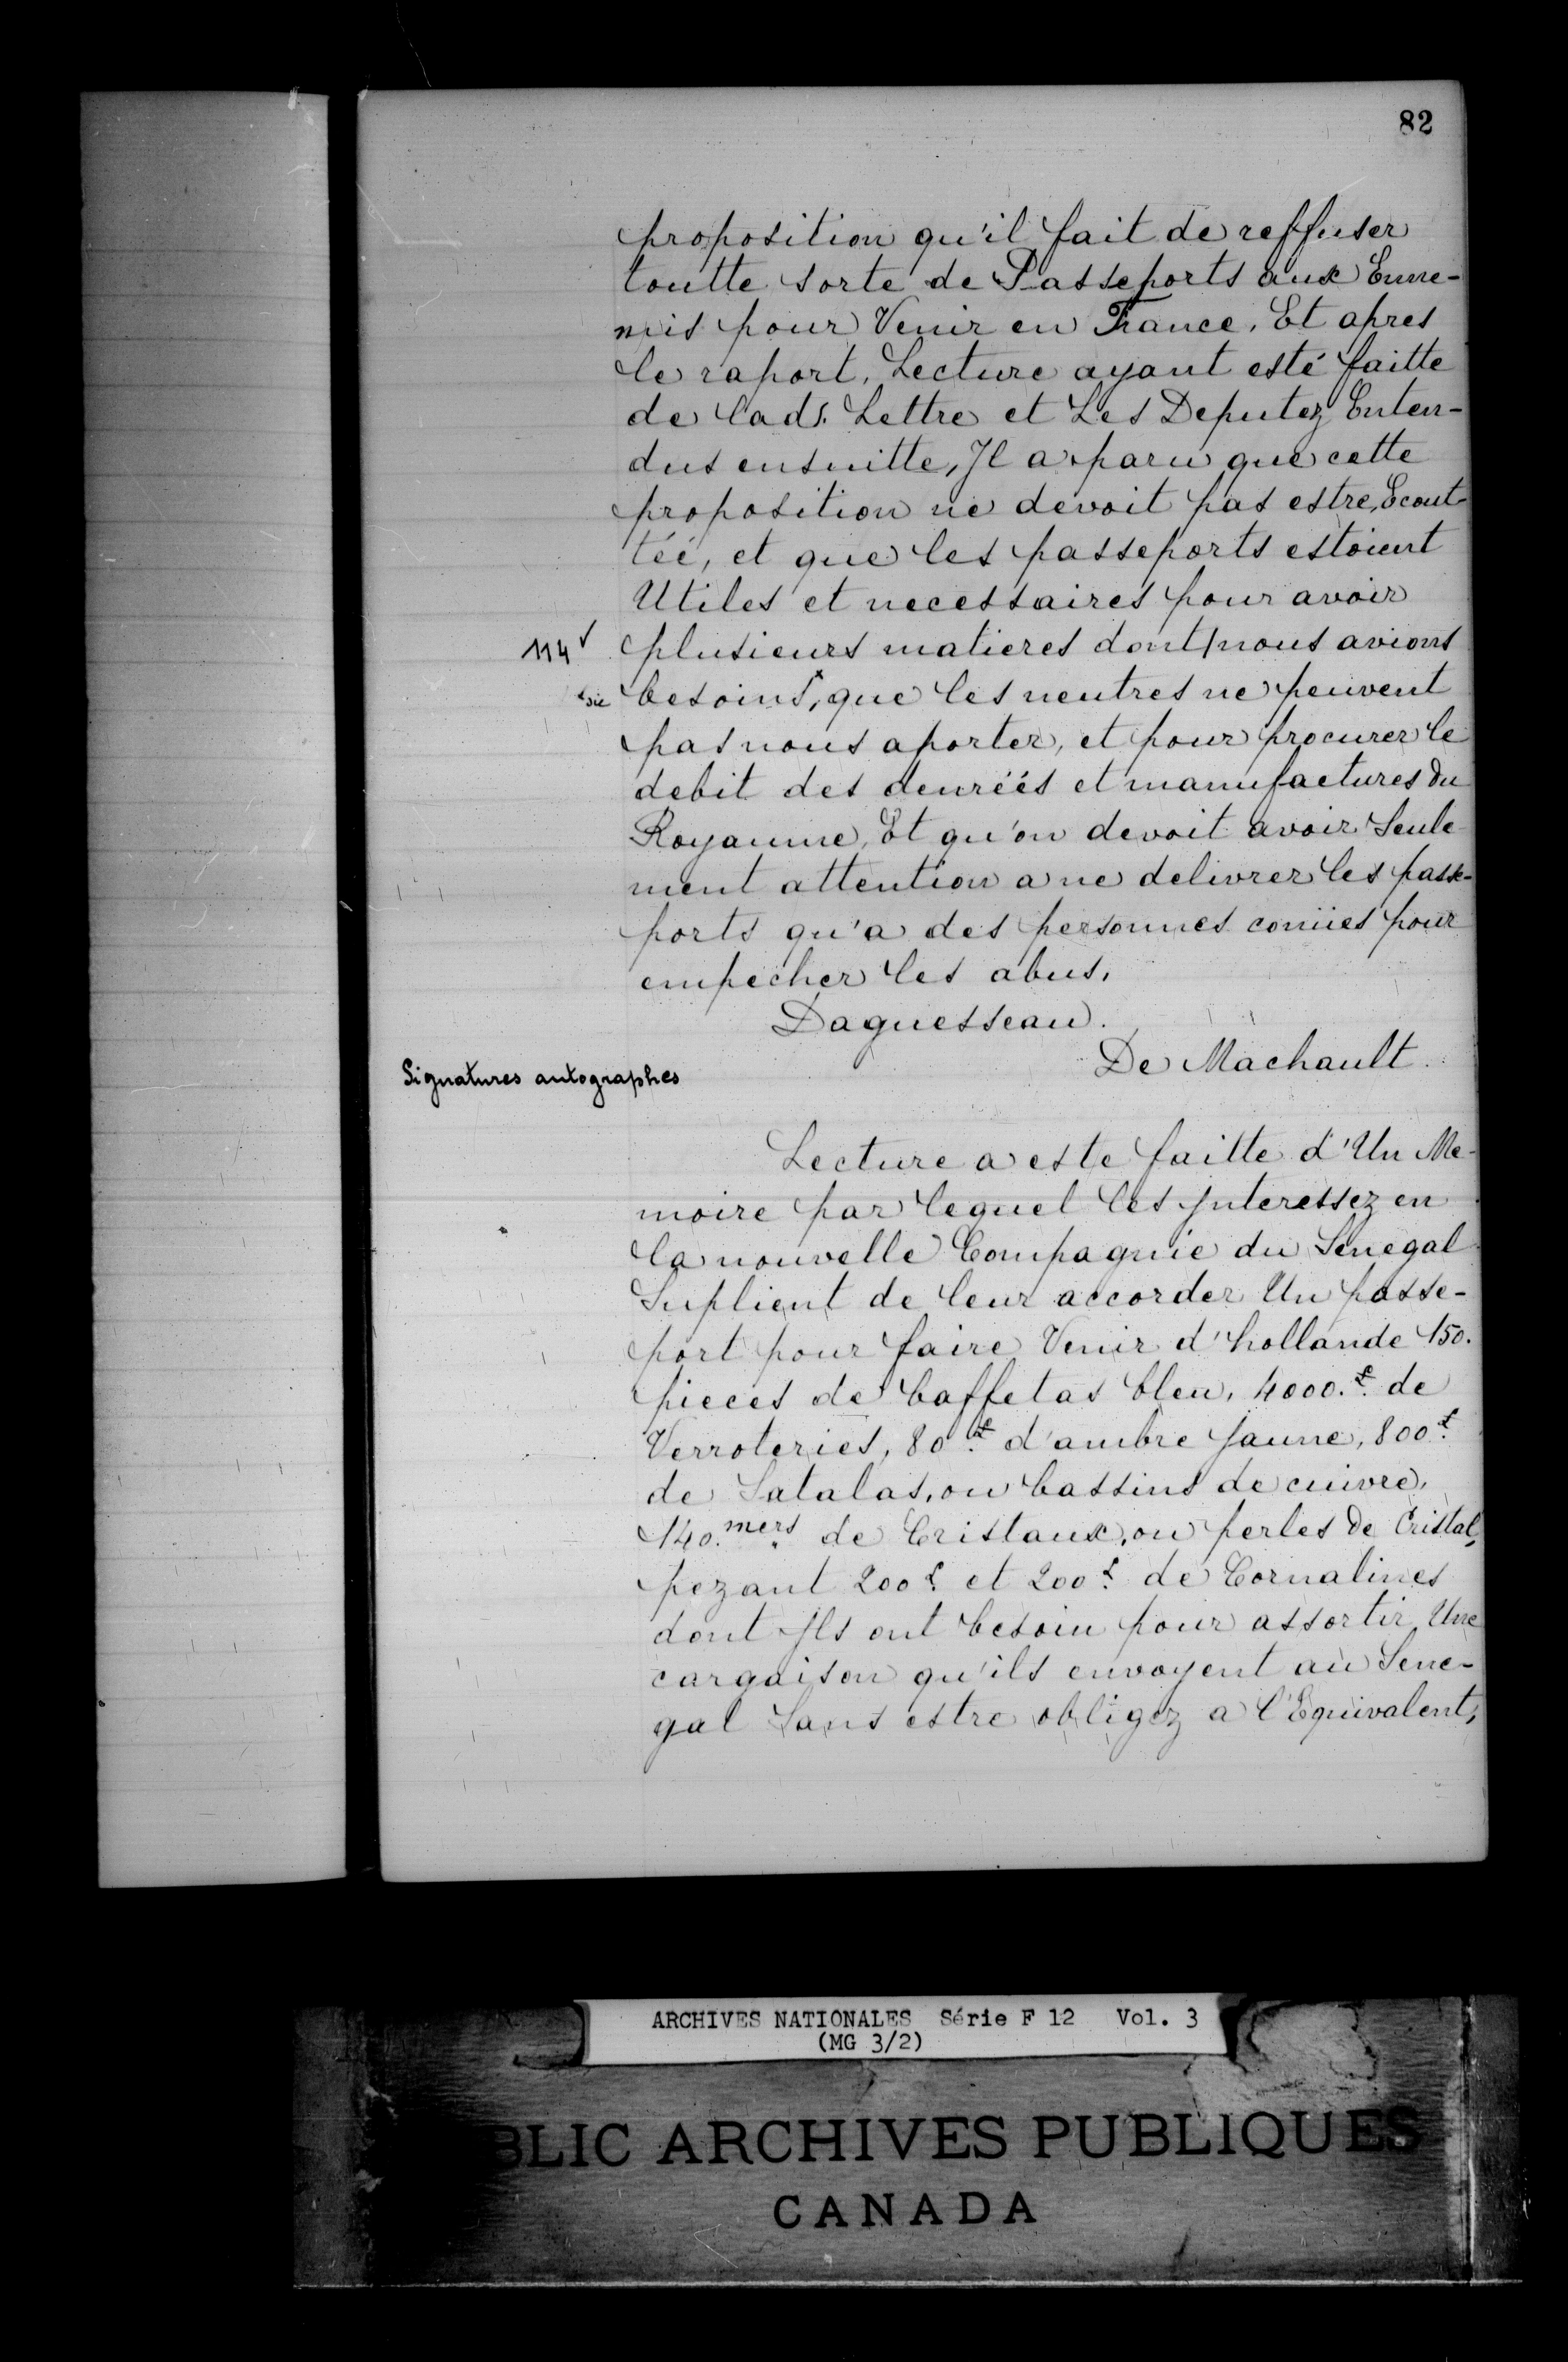 82
proposition qu'il fait de reffuser
toutte sorte de Passeports aux Enne-
mis pour Venir en France. Et apres
le raport, Lecture ayant esté faitte
de lad. Lettre et Les Deputez Enten-
dus ensuitte, Jl a paru que cette
proposition ne devoit pas estre, Ecout-
téé, et que les passeports estoient
Utiles et necessaires pour avoir
114v plusieurs matieres dont/nous avions
sic besoins*, que les neutres ne peuvent
pas nous aporter, et pour procurer le
debit des denréés et manufactures du
Royaume, Et qu'on devoit avoir Seule
ment attention a ne delivrer les passe-
ports qu'a des personnes connües pour
empecher les abus.
Daguesseau.
De Machault.
Signatures autographes
Lecture a este faitte d'Un Me-
moire par lequel les Jnteressez en
la nouvelle Compagnie du Senegal
Suplient de leur accorder Un passe-
port pour faire Venir d'hollande 150.
pieces de baffetas bleu, 4000.£ de
Verroteries, 80.£ d'ambre Jaune, 800£
de Satalas, ou bassins de cuivre,
140.mers de Cristaux, ou perles de Cristal,
pezant 200£ et 200£ de Cornalines
dont Jls ont besoin pour assortir Une
cargaison qu'ils envoyent au Sene-
gal Sans estre obligez a l'Equivalent,
ARCHIVES NATIONALES Série F 12 Vol. 3
(MG 3/2)
BLIC ARCHIVES PUBLIQUES
CANADA